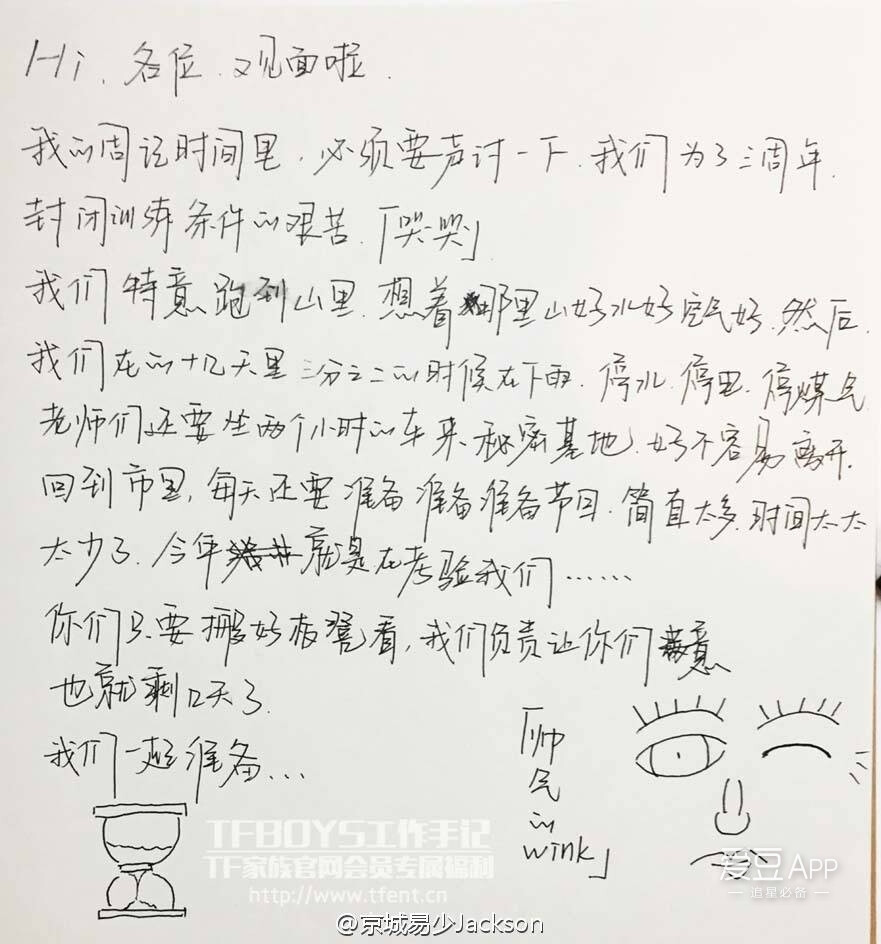 Hi、各位、又见面啦.
我的周记时间里，必须要声讨一下，我们为了三周年.
封闭训练条件的艰苦.「哭哭」
我们特意跑到山里.想着那里山好水好空气好.然后.
我们在的十几天里三分之二的时候在下雨.停水.停电.停煤气
老师们还要坐两个小时的车来秘密基地.好不容易离开.
回到市里，每天还要准备准备准备节目.简直太多.时间太太
太少了.今年就是在考验我们……
你们只要搬好板凳看，我们负责让你们意
也就剩几天了.
我们一起准备…
「帅
气
的
wink」
TFBOYS工作手记
TF家族官网会员专属福利
http://www.tfent.cn
爱豆APP
追星必备
@京城易少Jackson